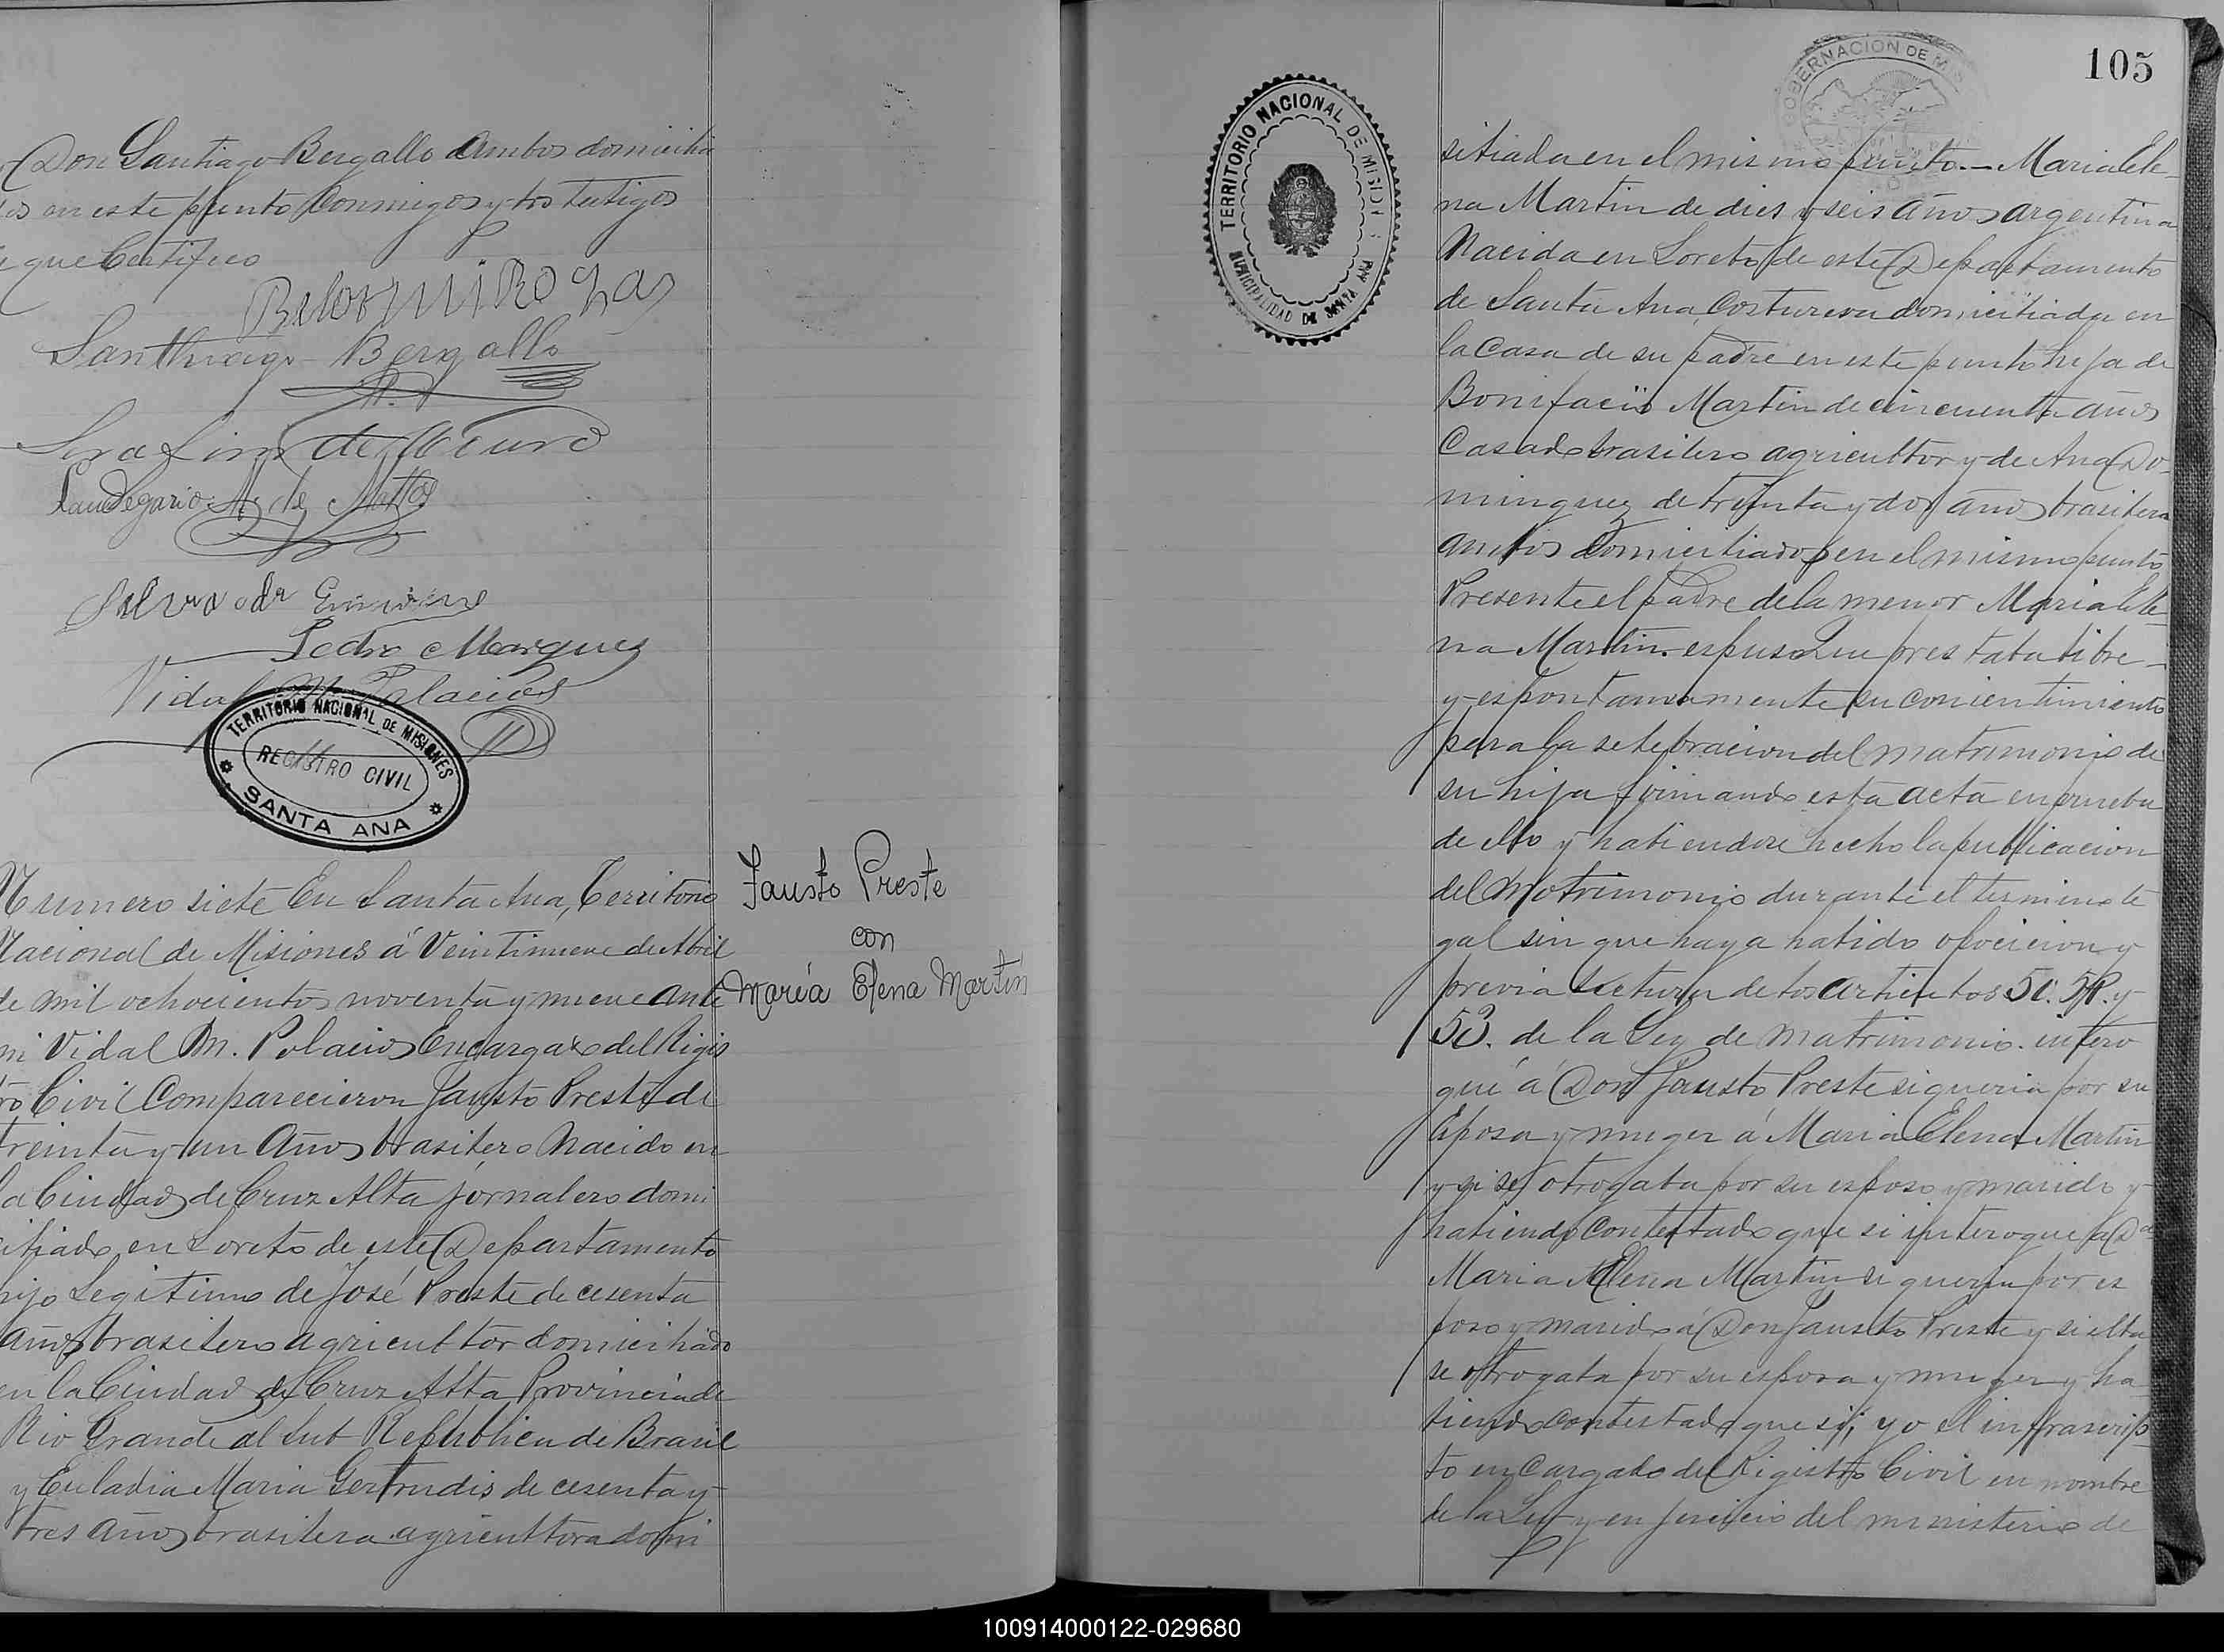 Don Santiago Bergallo ambos domicilia
os en este punto Conmigo y los testigos
que Certifico
Santhiago Bergallo
Pedro Marquez
Vidal M. Palacios
TERRITORIO NACIONAL DE MISIONES
REGISTRO CIVIL
SANTA ANA
Numero siete En Santa Ana, Territorio
Nacional de Misiones á Veintinueve de Abril
de mil ochocientos noventa y nueve ante
mi Vidal M. Palacios Encargado del Regis
tro Civil Comparecieron Fausto Preste de
treinta y un Años brasilero Nacido en
la Ciudad de Cruz Alta jornalero domi
ciliado en Loreto de este Departamento
hijo Legitimo de José Preste de cesenta
años brasilero agricultor domiciliado
en la Ciudad de Cruz Alta Provincia de
Rio Grande al Sub Republica de Brasil
y Euladia Maria Gertrudis de cesenta y
tres años brasilera agricultora domi
Fausto Preste
con
María Elena Martín
105
GOBERNACION DE MIS
TERRITORIO NACIONAL DE MISION
MUNICIPALIDAD DE SANTA ANA
sitiada en el mismo punto.— Maria Ele
na Martin de dies y seis años argentina
Nacida en Loreto de este Departamento
de Santa Ana, Costurera domicitiada en
la Casa de su padre en este punto hija de
Bonifacio Martin de cincuenta años
Casado brasilero agricultor y de Ana Do
minguez de trinta y dos años brasilera
ambos domicitiados en el mismo punto
Presente el padre de la menor Maria Ele
na Martin. espuso Que prestaba libre
y espontaneamente su concientimiento
para la selebracion del matrimonio de
su hija firmando esta acta en prueba
de ello y habiendose hecho la publicacion
del Motrimonio durante el termino le
gal sin que haya habido opocicion y
previa Lectura de los articulos 50. 51. y
53. de la Ley de Matrimonio. intero
gué á Don Fausto Preste si queria por su
Esposa y muger á Maria Elena Martin
y si se otrogaba por su esposo y marido y
habiendo Contestado que si interogue a Da
Maria Elena Martin si queria por es
poso y marido á Don Fausto Preste y si ella
se otrogaba por su esposa y muger y ha
biendo contestado que si, yo el infrascrip
to encargado del Registro Civil en nombre
de la Ley y en jercicio del ministerio de
100914000122-029680